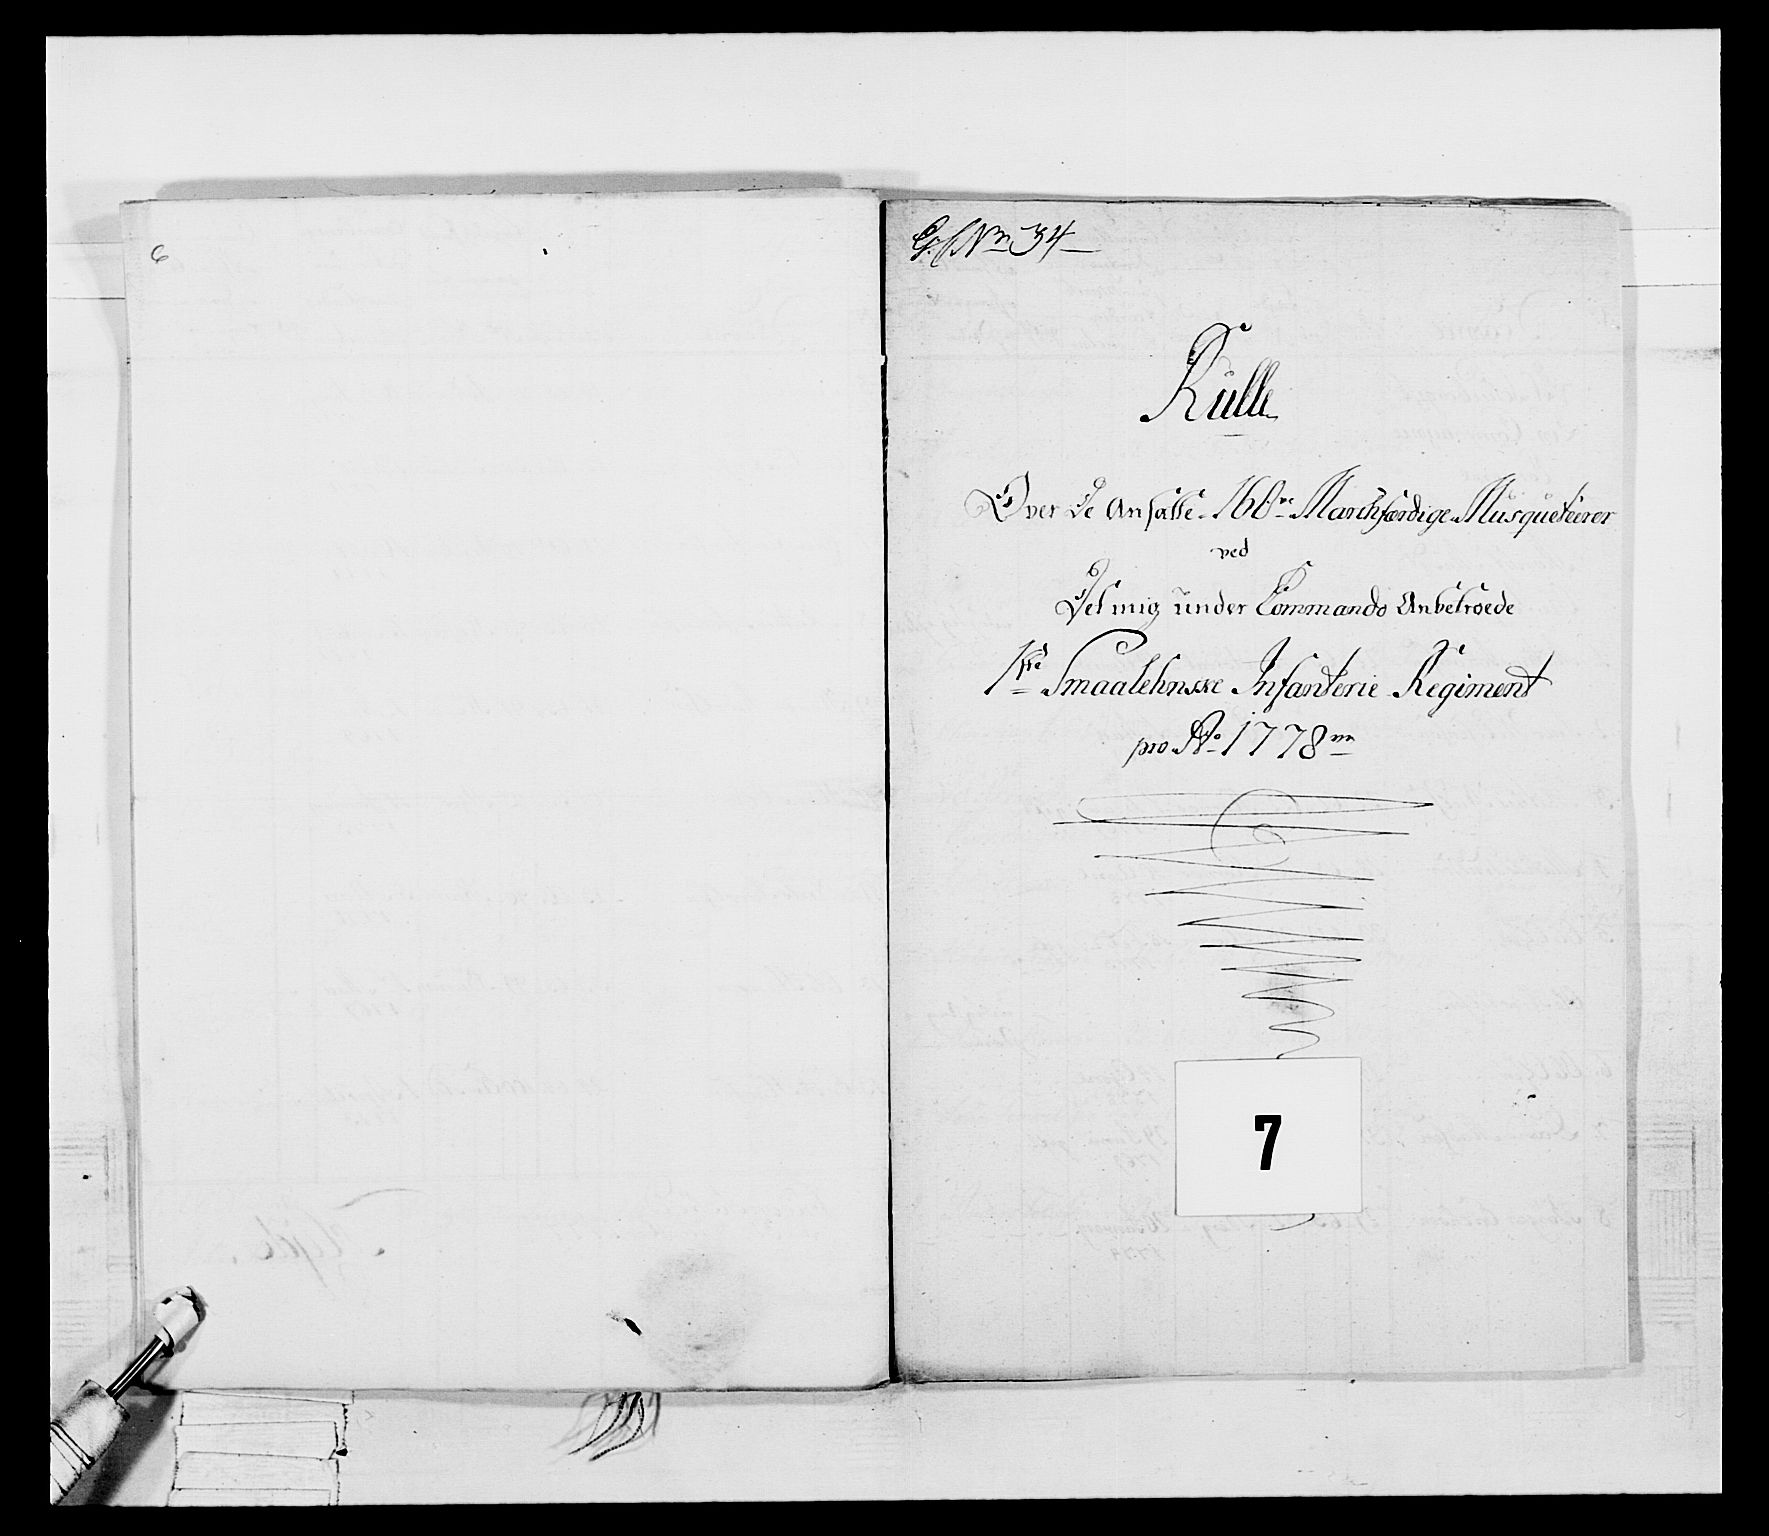 6
No 34
Rulle
Over De Ansatte 160de Marchfærdige Musqueteerer
ved
Det mig under Commando Anbetroede
1ste Smaalehnske Infanterie Regiment
pro Ao 1778
7